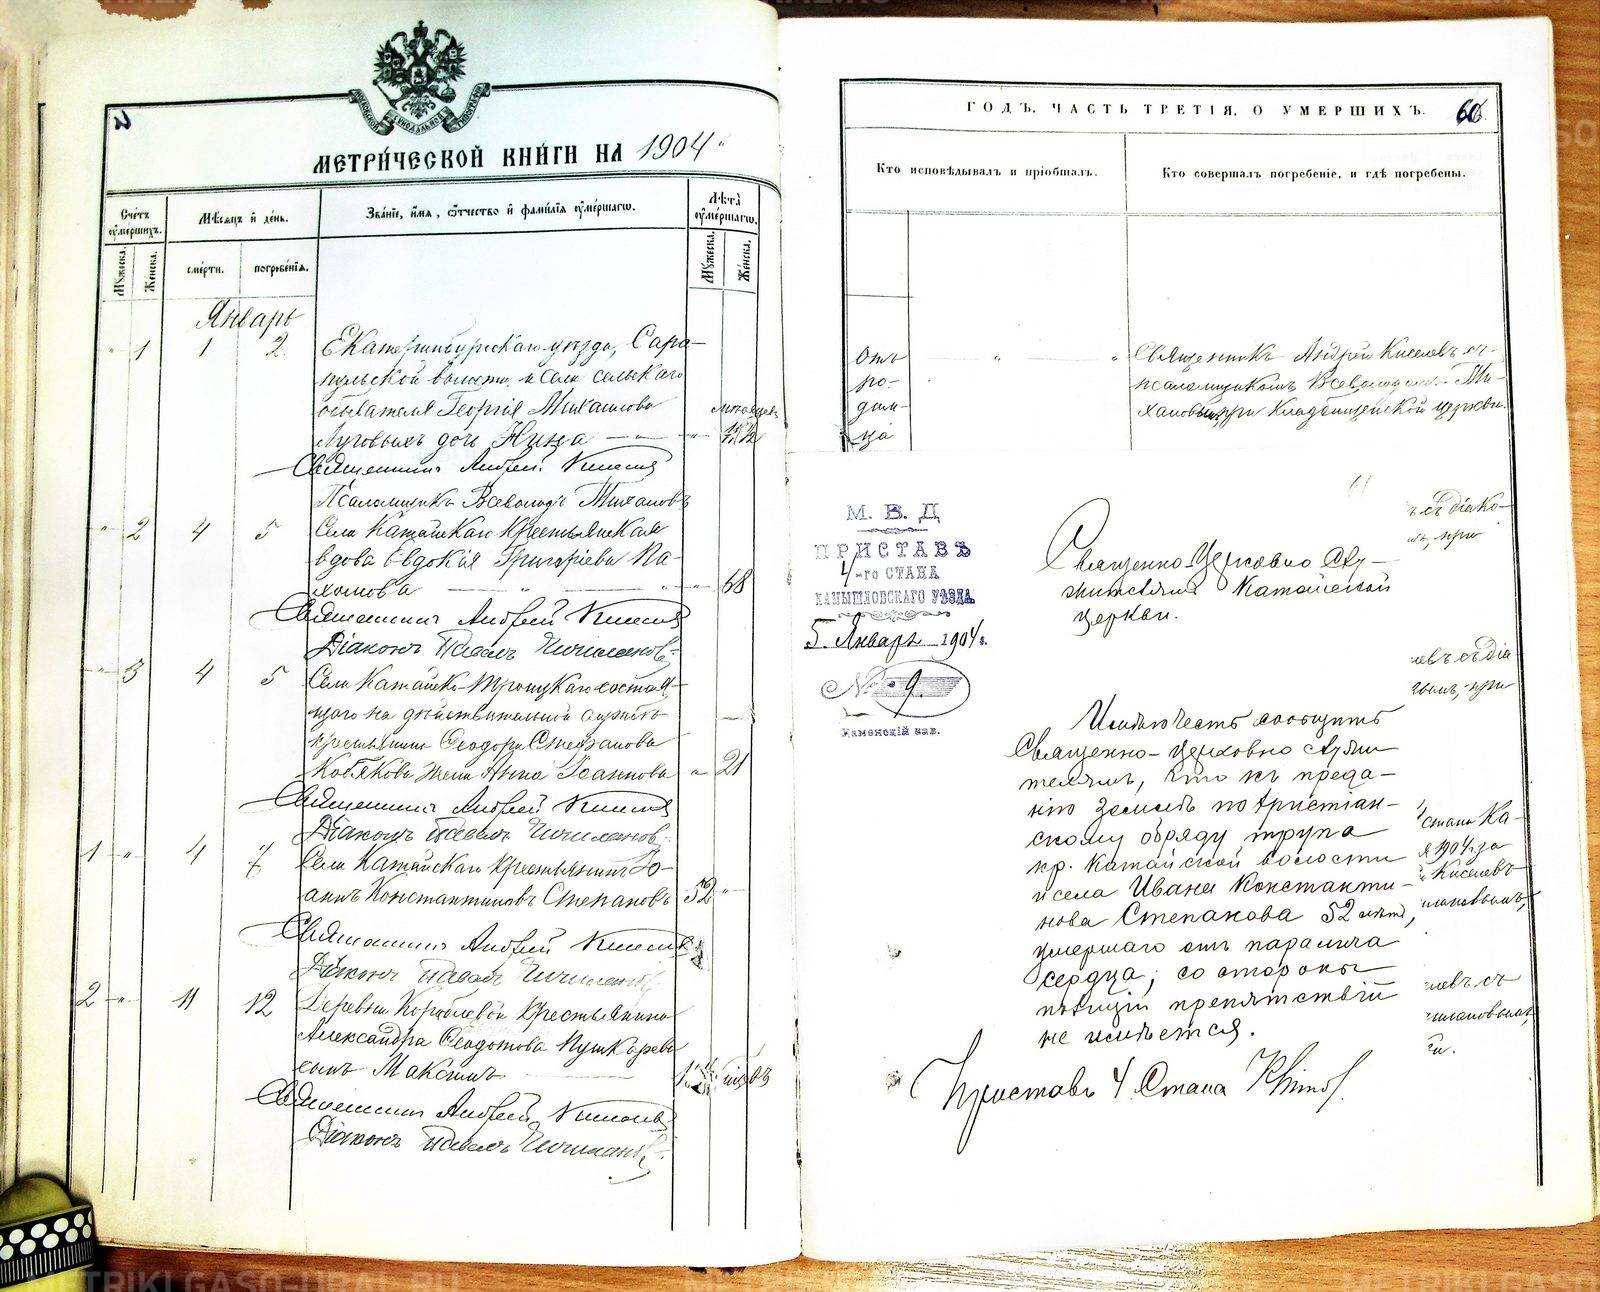 МЕТРИЧЕСКОЙ КНИГИ НА 1904
Счетъ умершихъ.
Мѣсяцъ и день.
Званіе, имя, отчество и фамилія умершаго.
Лѣта умершаго.
Мужеска.
Женска.
смерти.
погребенія.
Мужеска.
Женска.
Январь
1 1 2 Екатеринбургскаго уѣзда, Сара-
пульской волости и села сельскаго
обывателя Георгія Михаилова
Луговыхъ дочь Нина
Священникъ Андрей Киселевъ
Псаломщикъ Всеволодъ
2 4 5 Села Катайскаго крестьянская
вдова Евдокія Григоріева Па-
хомова 68
Священникъ Андрей Киселевъ
Діаконъ Павелъ
3 4 5 Села Катайско-Троицкаго состоя-
щаго на дѣйствительной службѣ
крестьянина Ѳеодора Стефанова
Кобякова жена Анна Іоаннова 21
Священникъ Андрей Киселевъ
Діаконъ Павелъ
1 4 7 Села Катайскаго крестьянинъ Іо-
аннъ Константиновъ Степановъ 52
Священникъ Андрей Киселевъ
Діаконъ Павелъ
2 11 12 Деревни крестьянина
Александра Ѳеодотова Пушкарева
сынъ Максимъ
Священникъ Андрей Киселевъ
Діаконъ Павелъ
ГОДЪ, ЧАСТЬ ТРЕТІЯ, О УМЕРШИХЪ.
Кто исповѣдывалъ и пріобщалъ.
Кто совершалъ погребеніе, и гдѣ погребены.
Отъ
ро-
дим-
ца
Священникъ Андрей Киселевъ съ
псаломщикомъ Всеволодомъ
при кладбищенской церкви.
М. В. Д
ПРИСТАВЪ
4-го СТАНА
КАМЫШЛОВСКАГО УѢЗДА.
5 Января 1904 г.
№ 9
Каменскій зав.
Священно-Церковно Слу-
жителямъ Катайской
церкви.
Имѣю честь сообщить
Священно-церковно служи
телямъ, что къ преда-
нію землѣ по христіан-
скому обряду трупа
кр. Катайской волости
и села Ивана Константи-
нова Степанова 52 лѣтъ,
умершаго отъ паралича
сердца, со стороны
полиціи препятствій
не имѣется.
Приставъ 4 Стана
ъ съ діако-
при
евъ съ діа
при
стана Ка-
я 1904 г. за
Киселевъ
лановымъ,
левъ съ
METRIKI.GASO-URAL.RU